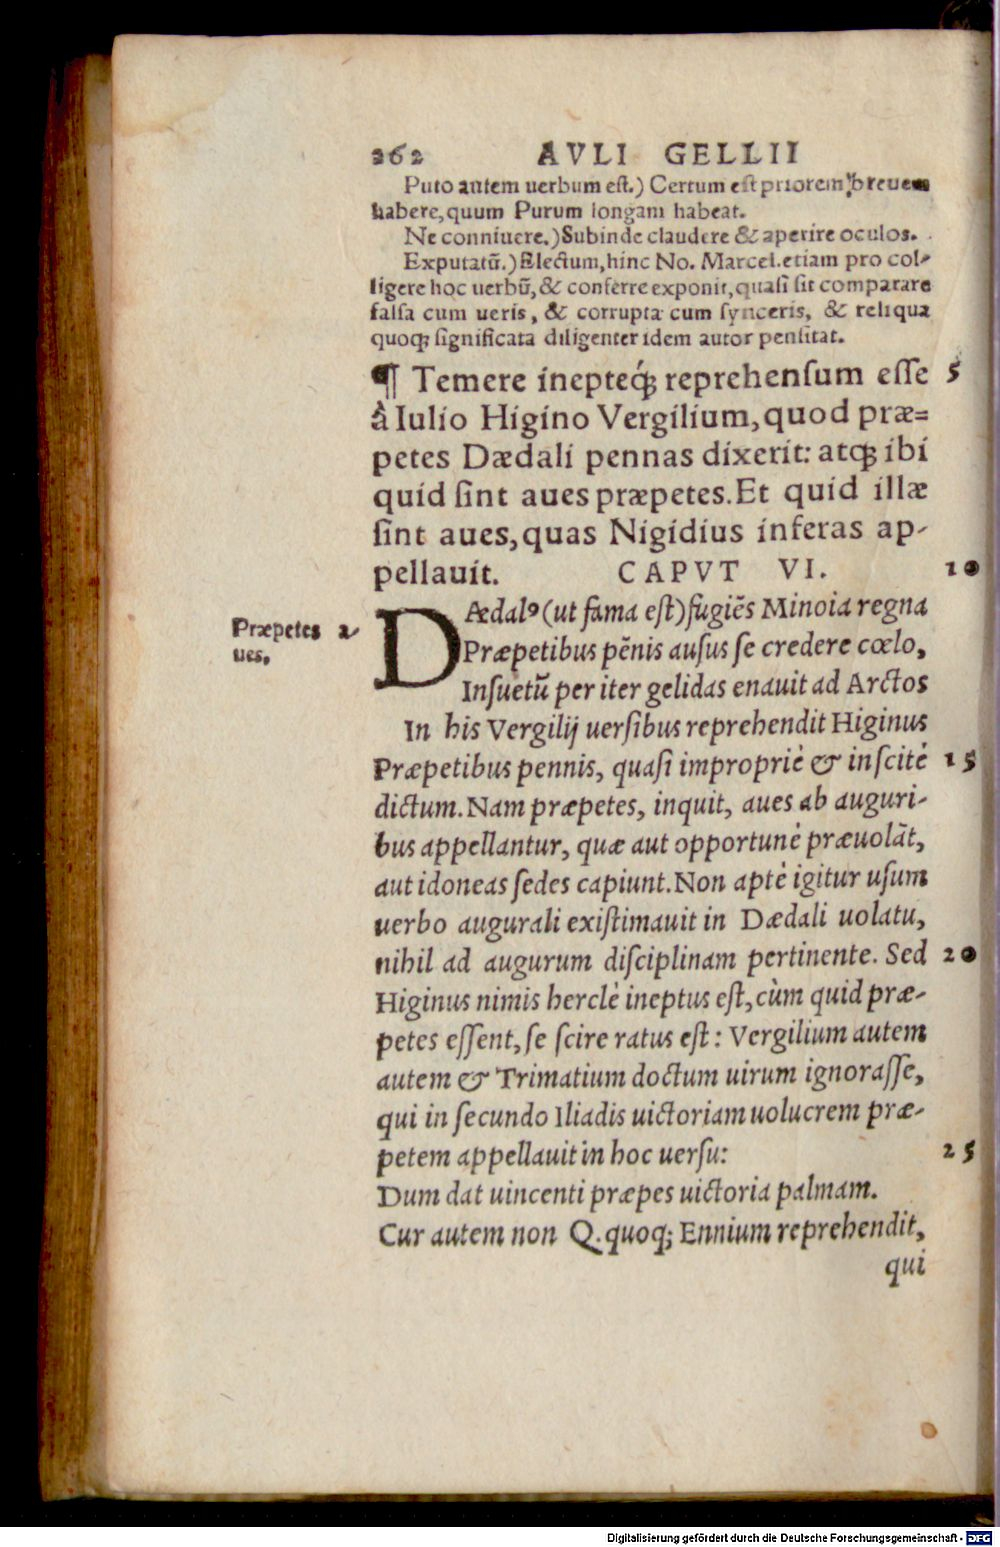 262 AVLI GELLII
Puto autem uerbum est.) Certum est priorem breuem
habere, quum Purum longam habeat.
Ne conniuere.) Subinde claudere & aperire oculos.
Exputatũ.) Electum, hinc No. Marcel. etiam pro col-
ligere hoc uerbũ, & conferre exponit, quasi sit comparare
falsa cum ueris, & corrupta cum synceris, & reliqua
quoq; significata diligenter idem autor pensitat.
¶ Temere ineptéq; reprehensum esse 5
à Iulio Higino Vergilium, quod præ=
petes Dædali pennas dixerit: atq; ibi
quid sint aues præpetes. Et quid illæ
sint aues, quas Nigidius inferas ap-
pellauit. CAPVT VI. 10
DÆdalꝰ (ut fama est) fugiẽs Minoia regna
Præpetes a-
ues.
Præpetibus pẽnis ausus se credere cœlo,
Insuetũ per iter gelidas enauit ad Arctos
In his Vergilij uersibus reprehendit Higinus
Præpetibus pennis, quasi impropriè & inscitè 15
dictum. Nam præpetes, inquit, aues ab auguri-
bus appellantur, quæ aut opportunè præuolãt,
aut idoneas sedes capiunt. Non aptè igitur usum
uerbo augurali existimauit in Dædali uolatu,
nihil ad augurum disciplinam pertinente. Sed 20
Higinus nimis herclè ineptus est, cùm quid præ-
petes essent, se scire ratus est: Vergilium autem
autem & Trimatium doctum uirum ignorasse,
qui in secundo Iliadis uictoriam uolucrem præ-
petem appellauit in hoc uersu: 25
Dum dat uincenti præpes uictoria palmam.
Cur autem non Q. quoq; Ennium reprehendit,
qui
Digitalisierung gefördert durch die Deutsche Forschungsgemeinschaft - DFG